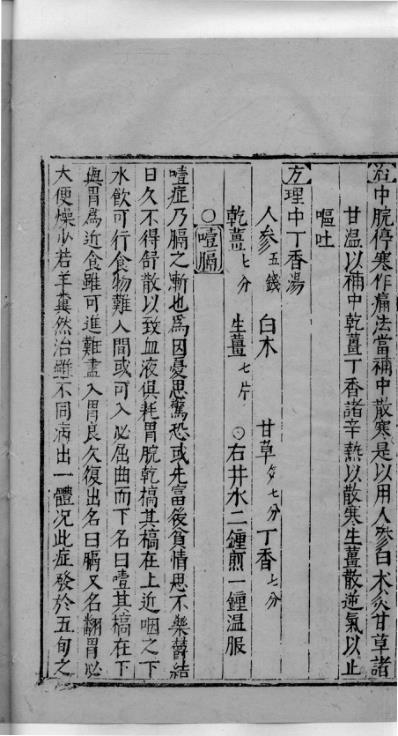 治中脘停寒作痛法當補中散寒是以用人參白术炙甘草諸
甘温以補中乾薑丁香諸辛熱以散寒生薑散逆氣以止
嘔吐
方理中丁香湯
人参五錢 白术 甘草炙七分 丁香七分
乾薑七分 生薑七片 ○右井水二鍾煎一鍾温服
○噎膈
噎症乃膈之漸也為因憂思驚恐或先富後貧情思不樂欝結
日久不得舒散以致血液俱耗胃脘乾槁其槁在上近咽之下
水飲可行食物難入間或可入必屈曲而下名曰噎其槁在下
與胃為近食雖可進難盡入胃良久復出名曰膈又名翻胃必
大便燥少若羊糞然治雖不同病出一體况此症發於五旬之